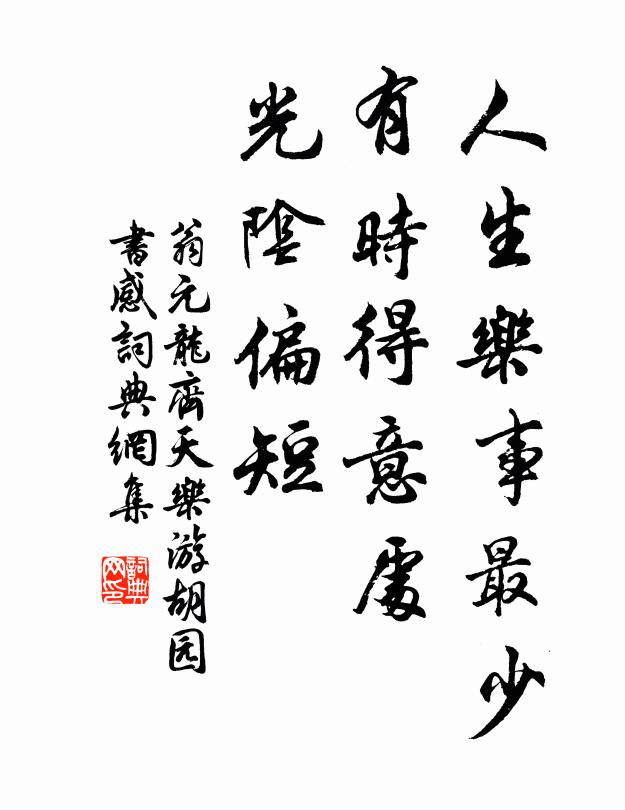 人生樂事最少
有時得意處
光陰偏短
翁元龍齊天樂游胡园
書感詞典網集
詞典网印